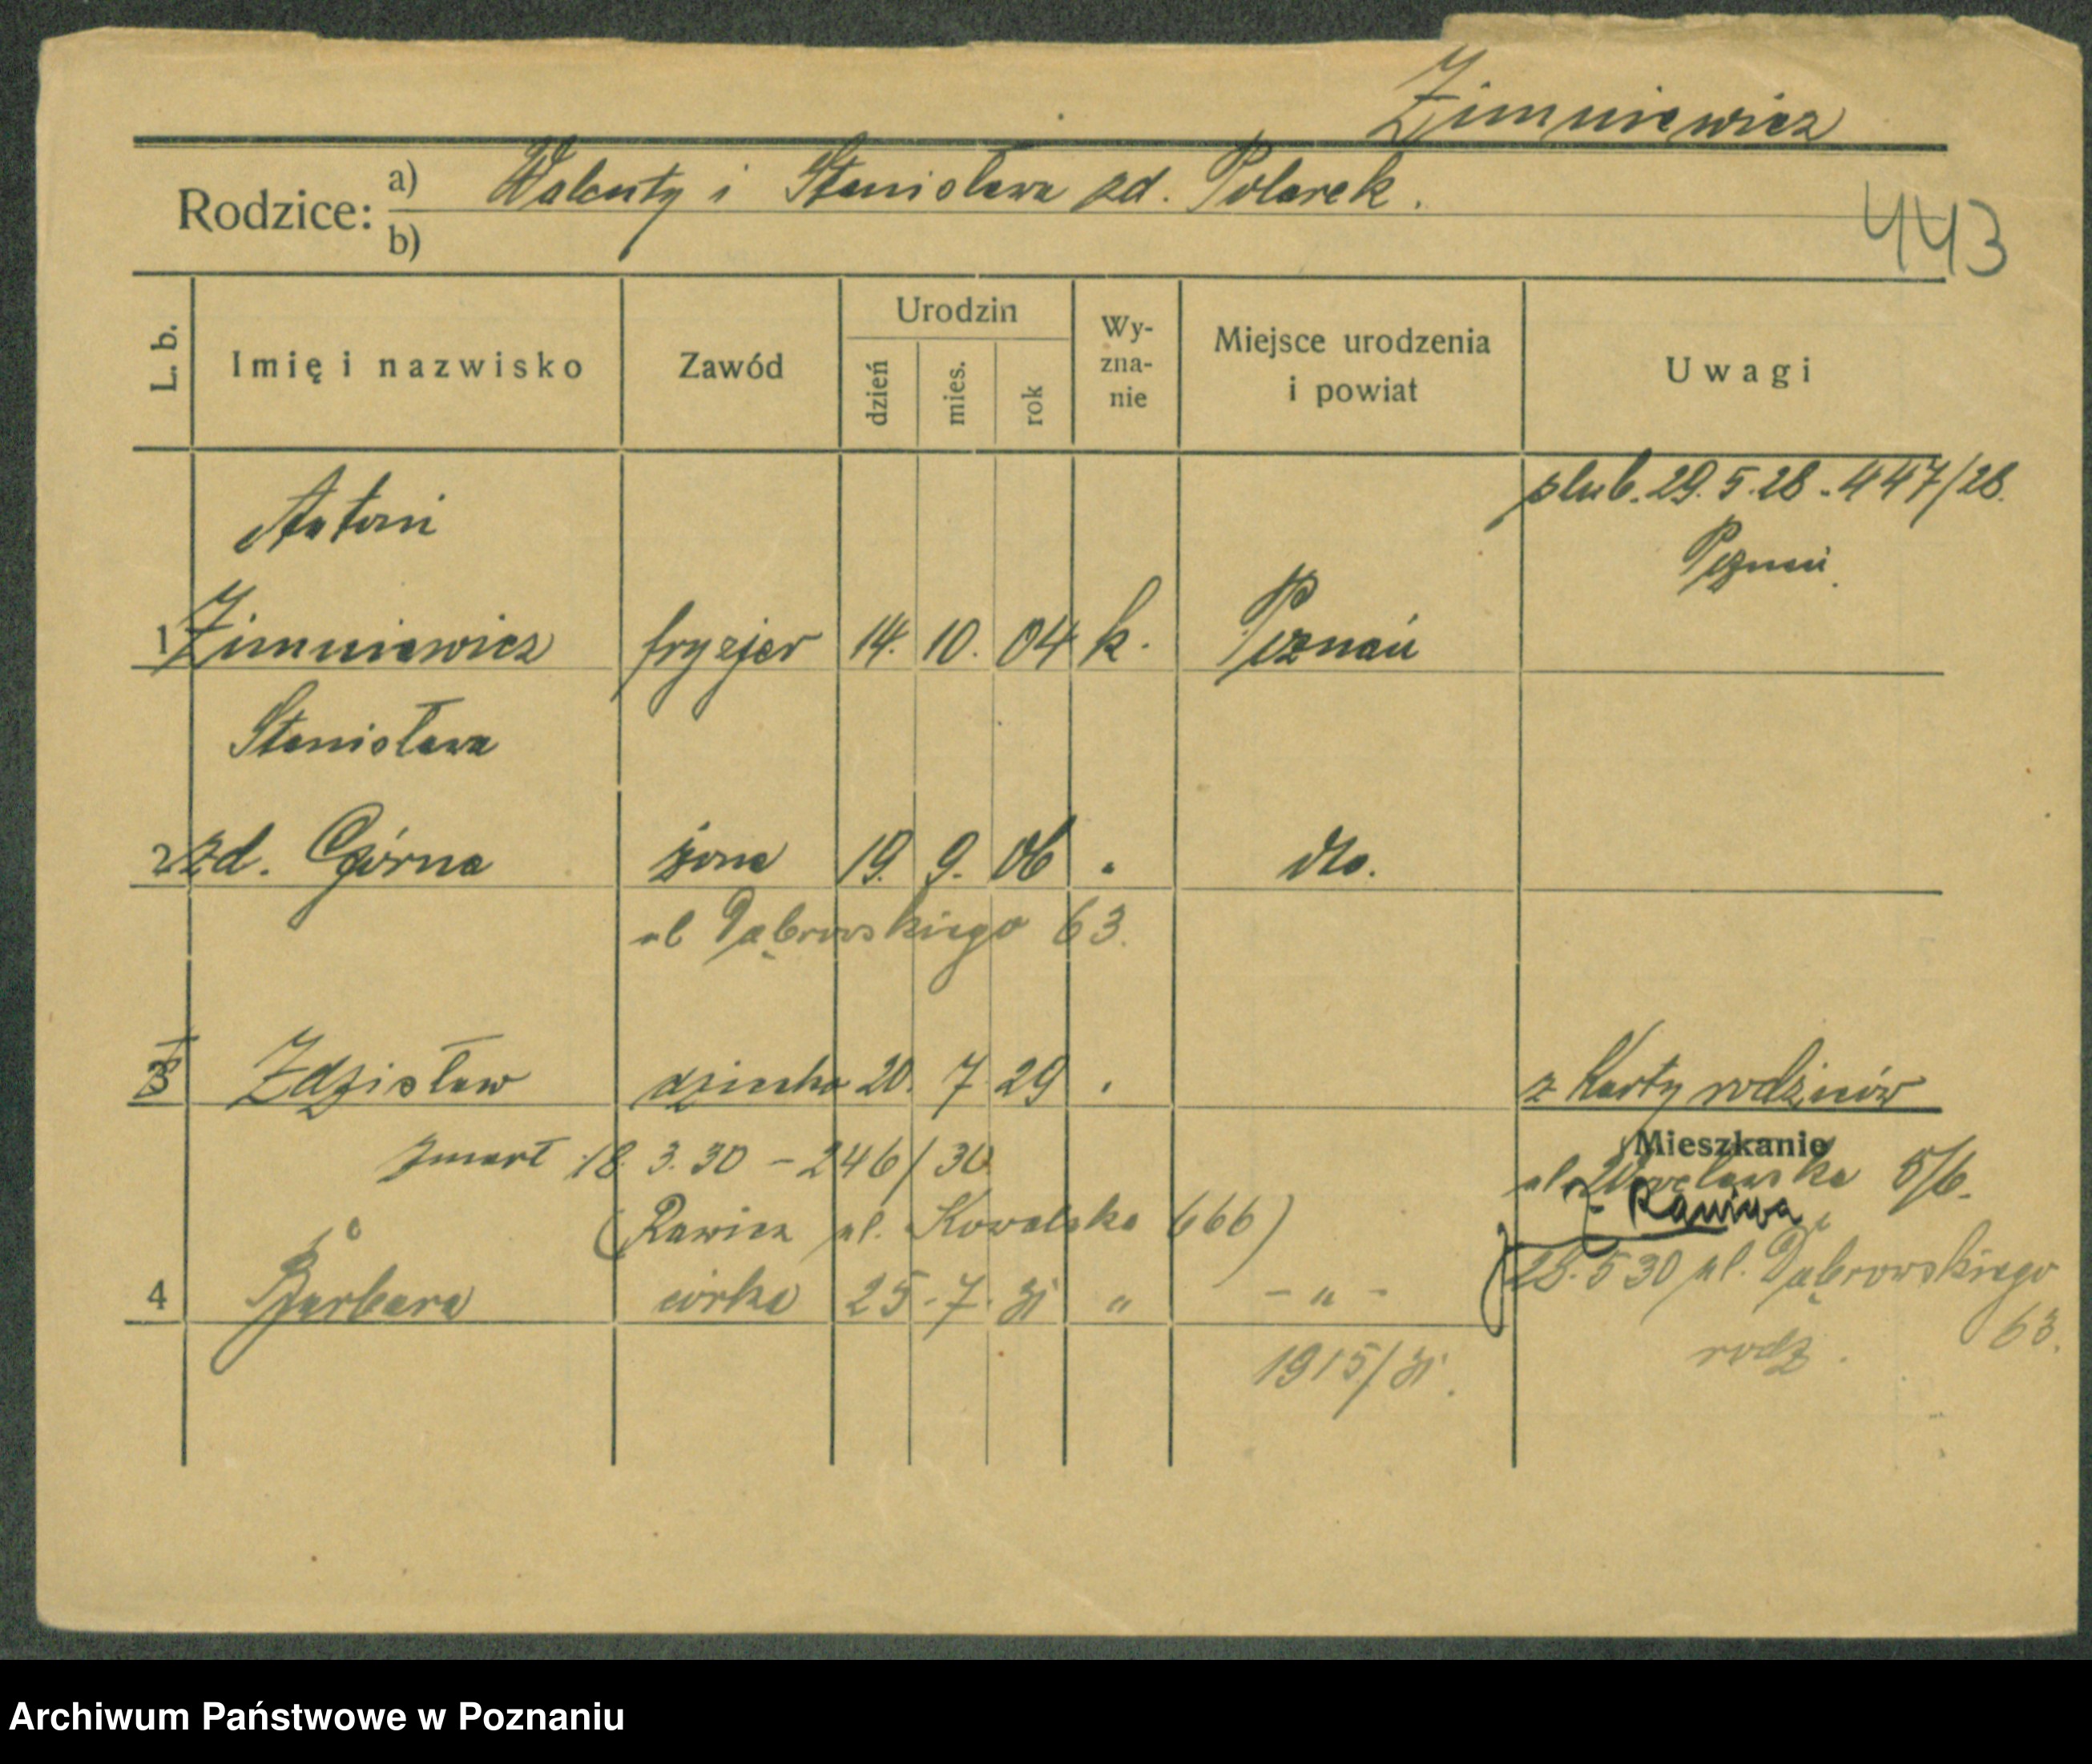 Zimniewicz
Rodzice: a) Walenty i Stanisława zd. Polarek.
b)
443
L. b.
Imię i nazwisko
Zawód
Urodzin
dzień
mies.
rok
Wy-
zna-
nie
Miejsce urodzenia
i powiat
Uwagi
ślub. 29.5.28 - 447/28.
Poznań.
Antoni
1 Zimniewicz fryzjer 14. 10. 04 k. Poznań
Stanisława
2 zd. Górna żona 19. 9. 06 " dto.
ul Dąbrowskiego 63.
3 Zdzisław dziecko 20. 7 29 "
z Karty rodziców
zmarł 18. 3. 30 - 246/30
Mieszkanie
ul. Wrocławska 5/6.
(Rawicz ul. Kowalska 666)
z Rawicza
28.5 30 ul. Dąbrowskiego
63.
rodz.
4 Barbara córka 25. 7. 31 " - " -
1915/31.
Archiwum Państwowe w Poznaniu